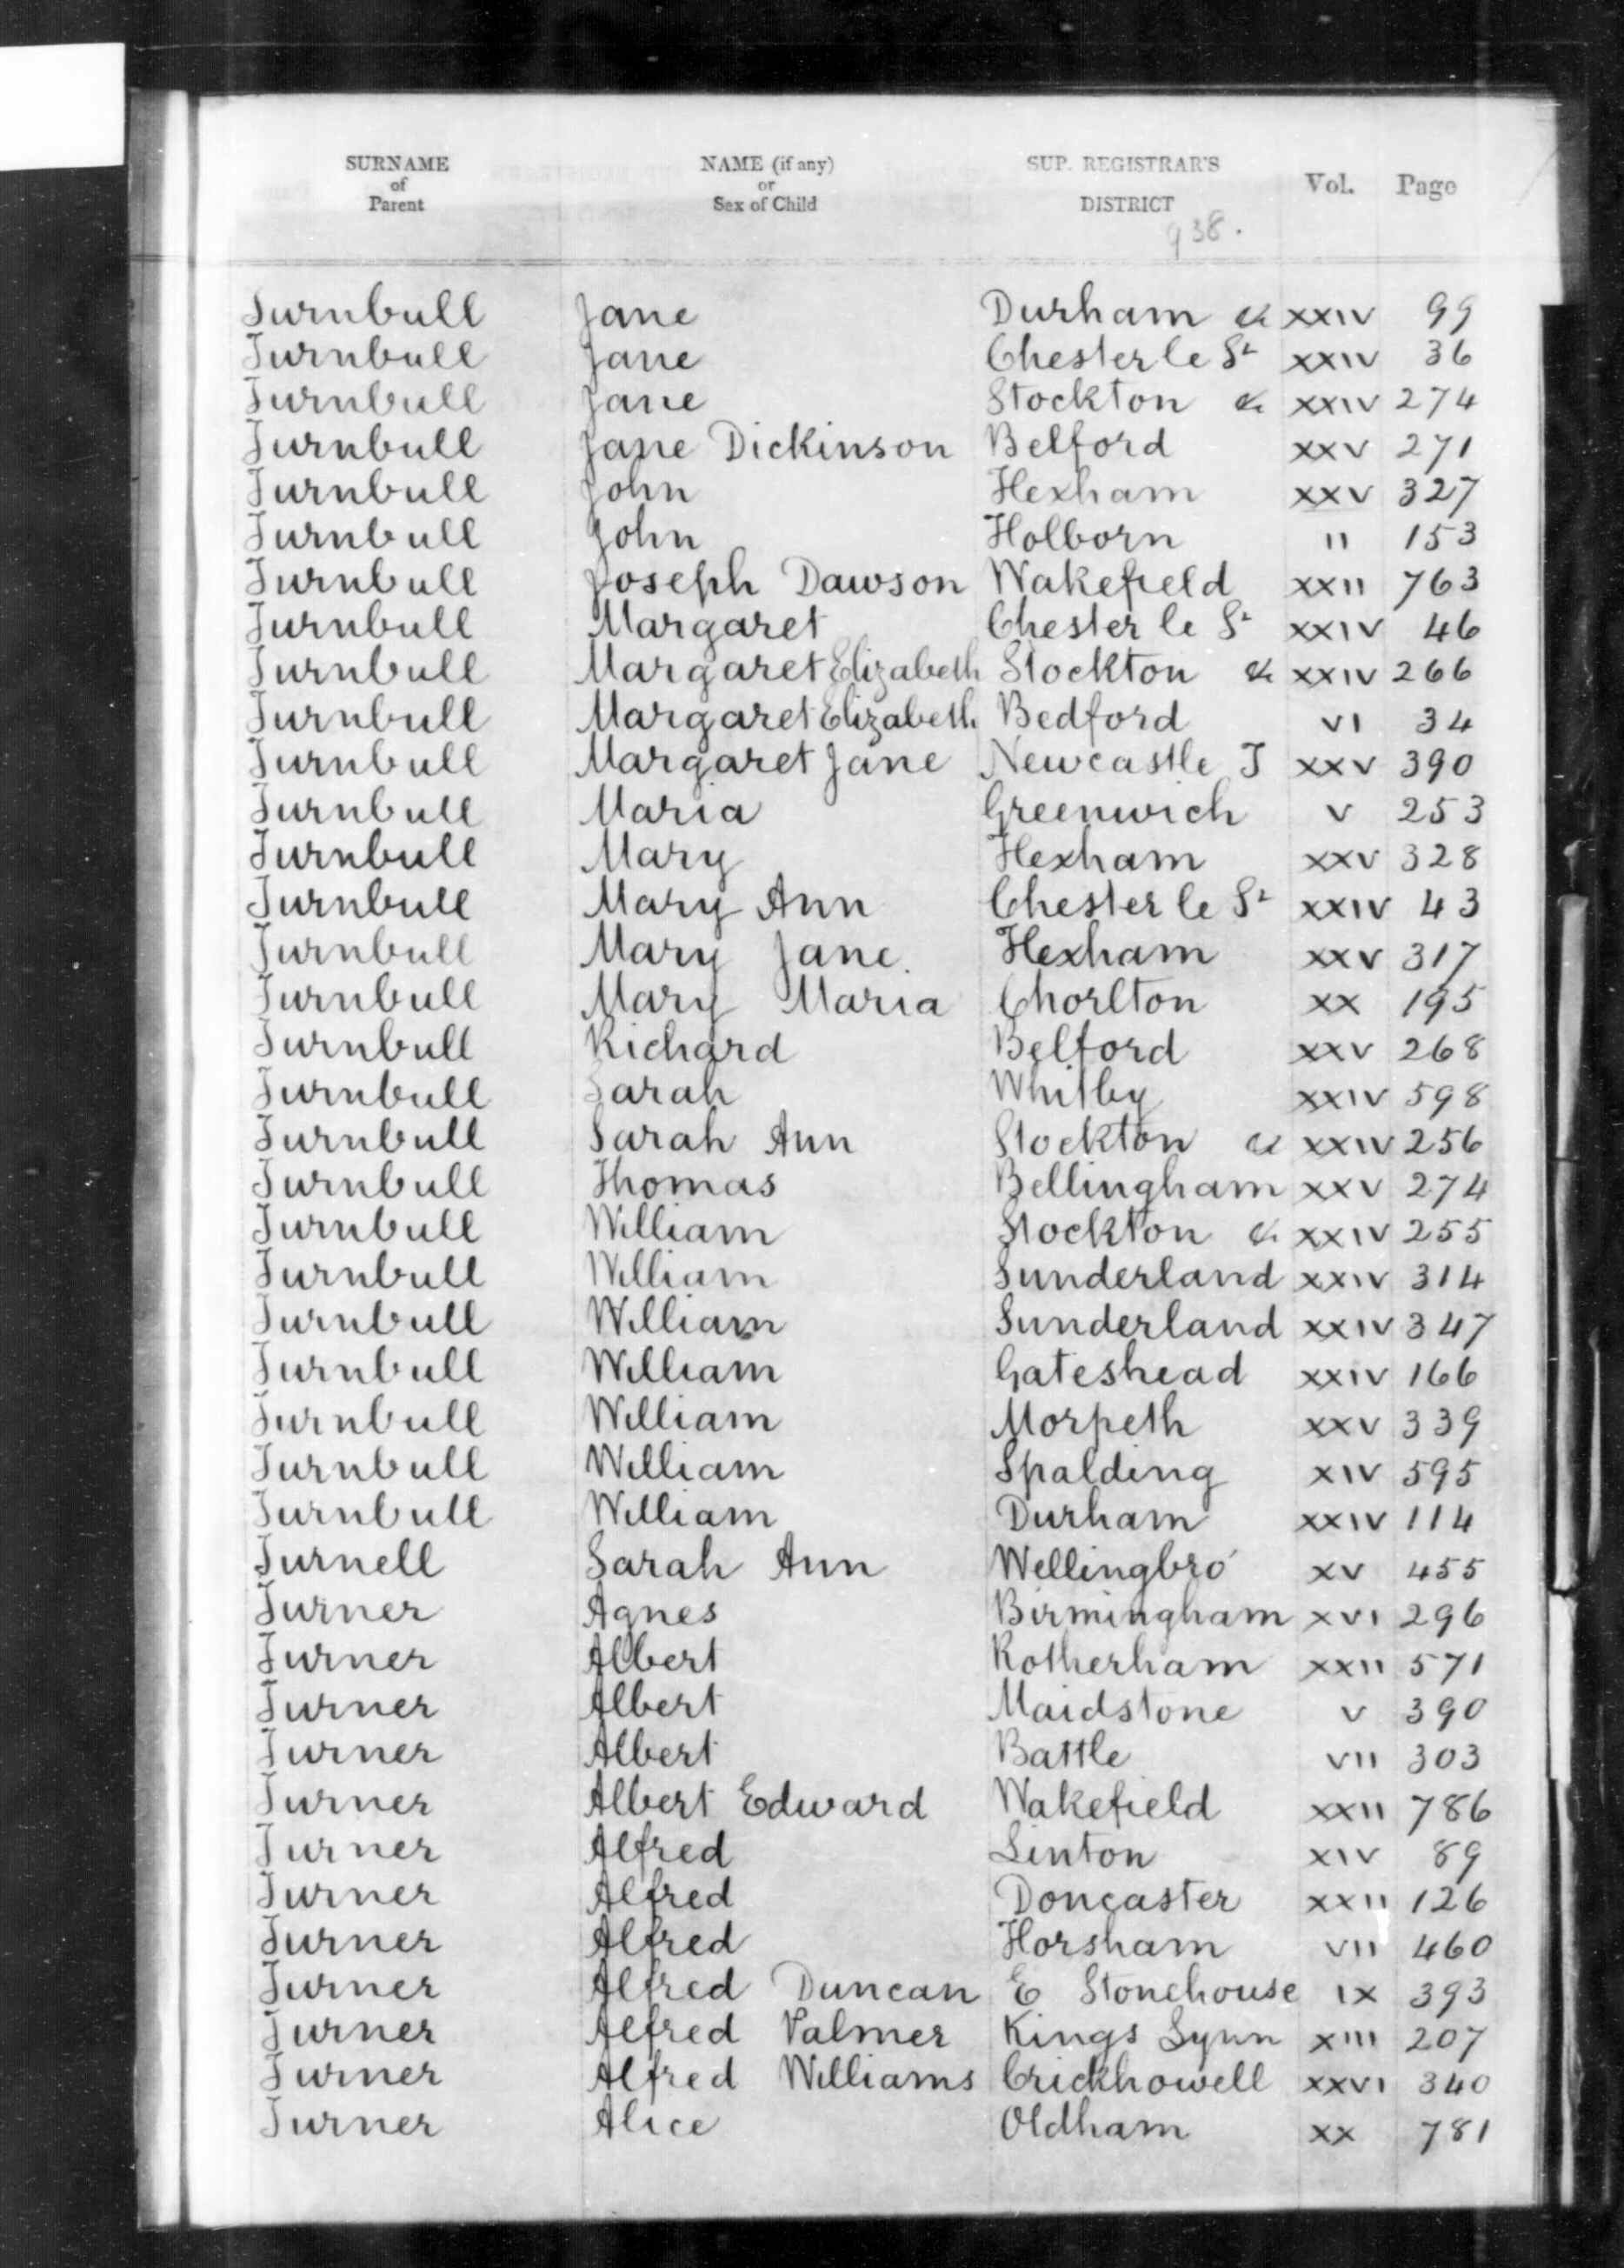 SURNAME of Parent NAME (if any) or Sex of Child SUP. REGISTRAR'S DISTRICT Vol. Page
938.
Turnbull Jane Durham & XXIV 99
Turnbull Jane Chester le St XXIV 36
Turnbull Jane Stockton & XXIV 274
Turnbull Jane Dickinson Belford XXV 271
Turnbull John Hexham XXV 327
Turnbull John Holborn II 153
Turnbull Joseph Dawson Wakefield XXII 763
Turnbull Margaret Chester le St XXIV 46
Turnbull Margaret Elizabeth Stockton & XXIV 266
Turnbull Margaret Elizabeth Bedford VI 34
Turnbull Margaret Jane Newcastle T XXV 390
Turnbull Maria Greenwich V 253
Turnbull Mary Hexham XXV 328
Turnbull Mary Ann Chester le St XXIV 43
Turnbull Mary Jane. Hexham XXV 317
Turnbull Mary Maria Chorlton XX 195
Turnbull Richard Belford XXV 268
Turnbull Sarah Whitby XXIV 598
Turnbull Sarah Ann Stockton & XXIV 256
Turnbull Thomas Bellingham XXV 274
Turnbull William Stockton & XXIV 255
Turnbull William Sunderland XXIV 314
Turnbull William Sunderland XXIV 347
Turnbull William Gateshead XXIV 166
Turnbull William Morpeth XXV 339
Turnbull William Spalding XIV 595
Turnbull William Durham XXIV 114
Turnell Sarah Ann Wellingbro' XV 455
Turner Agnes Birmingham XVI 296
Turner Albert Rotherham XXII 571
Turner Albert Maidstone V 390
Turner Albert Battle VII 303
Turner Albert Edward Wakefield XXII 786
Turner Alfred Linton XIV 89
Turner Alfred Doncaster XXII 126
Turner Alfred Horsham VII 460
Turner Alfred Duncan E Stonehouse IX 393
Turner Alfred Palmer Kings Lynn XIII 207
Turner Alfred Williams Crickhowell XXVI 340
Turner Alice Oldham XX 781